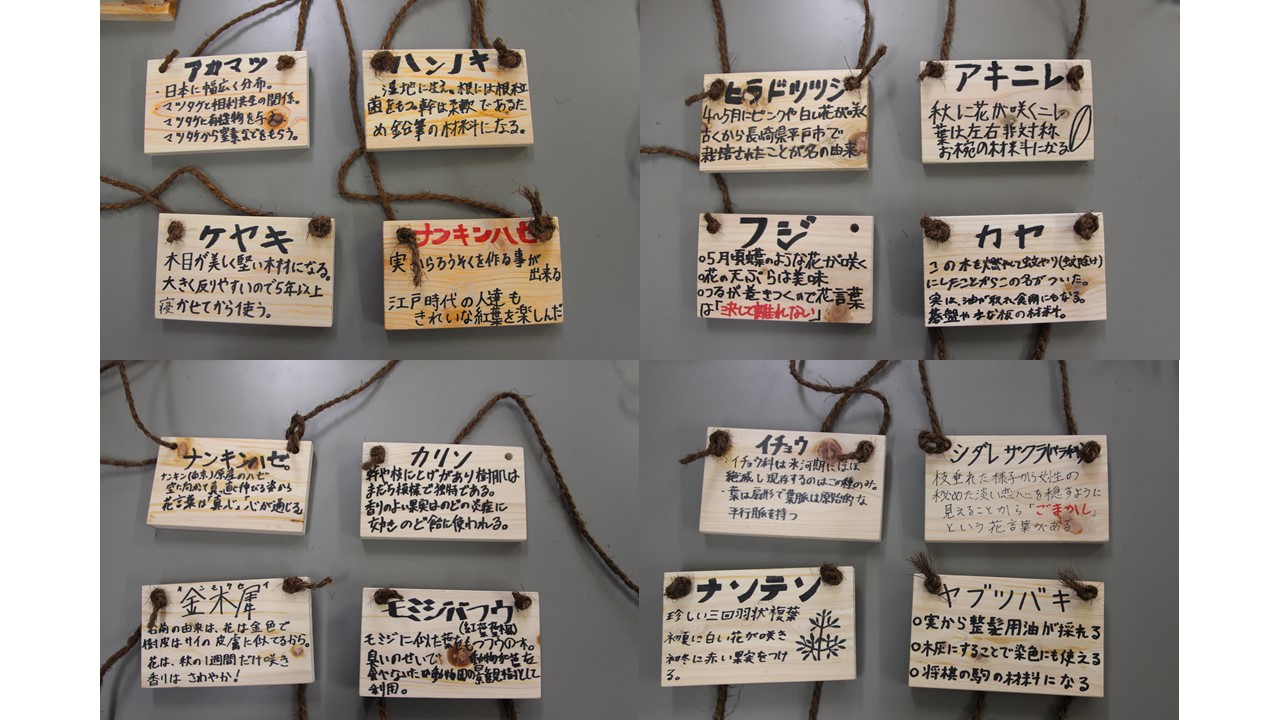 アカマツ
・日本に幅広く分布。
・マツタケと相利共生の関係。
マツタケに有機物を与る
マツタケから窒素などをもらう。
ハンノキ
・湿地に生え、根には根粒
菌をもつ。幹は柔軟であるた
め鉛筆の材料になる。
ケヤキ
木目が美しく堅い木材になる。
大きく反りやすいので5年以上
寝かせてから使う。
ナンキンハゼ
実からろうそくを作る事が
出来る
江戸時代の人達も
きれいな紅葉を楽しんだ
ヒラドツツジ
4〜5月にピンクや白い花が咲く
古くから長崎県平戸市で
栽培されたことが名の由来
アキニレ
秋に花が咲くニレ
葉は左右非対称
お椀の材料になる
フジ
○5月頃蝶のような花が咲く
○花の天ぷらは美味
○つるが巻きつくので花言葉
は「決して離れない」
カヤ
この木を燃やして蚊やり(蚊除け)
にしたことからこの名がついた。
実は、油が取れ食用にもなる。
碁盤やまな板の材料。
ナンキンハゼ。
ナンキン(南京)原産のハゼ
空に向かて真っ直ぐ伸びる姿から
花言葉は「真心」「心が通じる」
カリン
幹や枝にとげがあり樹肌は
まだら模様で独特である。
香りのよい果実はのどの炎症に
効きのど飴に使われる。
イチョウ
・イチョウ科は氷河期にほぼ
絶滅し現存するのはこの種のみ。
・葉は扇形で葉脈は原始的な
平行脈を持つ
シダレサクラ(バラ科)
枝垂れた様子から女性の
秘めた淡い恋心を隠すように
見えることから「ごまかし」
という花言葉がある
キンモクセイ
金木犀
名前の由来は、花は金色で
樹皮はサイの皮膚に似てるから。
花は、秋の1週間だけ咲き
香りはさわやか!
モミジバフウ
(紅葉葉楓)
モミジに似た葉をもつフウの木。
臭いのせいで動物が葉を
食べないため動物園の景観植物として
利用。
ナンテン
珍しい三回羽状複葉
初夏に白い花が咲き
初冬に赤い果実をつけ
る。
ヤブツバキ
○実から整髪用油が採れる
○木灰にすることで染色にも使える
○将棋の駒の材料になる